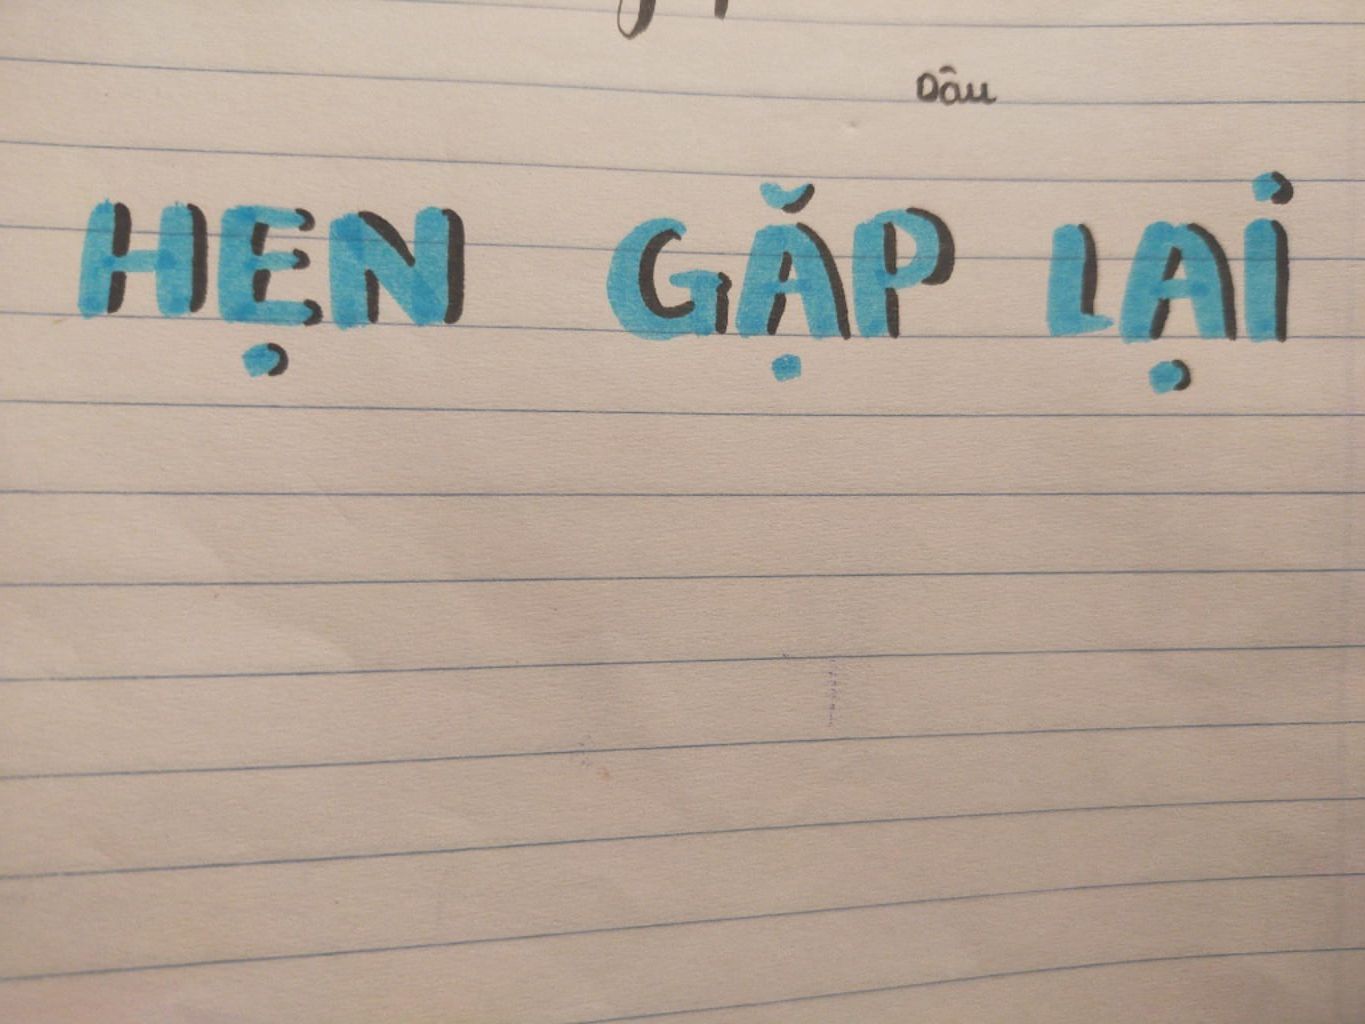 Dâu
HẸN GẶP LẠI